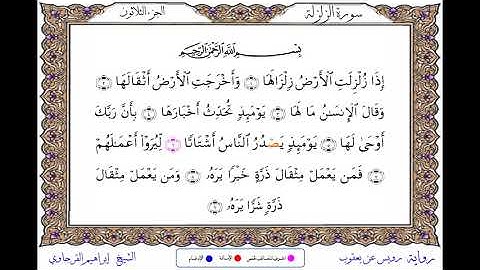 سورة الزلزلة
الجزء الثلاثون
بِسْمِ اللَّهِ الرَّحْمَٰنِ الرَّحِيمِ
إِذَا زُلْزِلَتِ الْأَرْضُ زِلْزَالَهَا ١ وَأَخْرَجَتِ الْأَرْضُ أَثْقَالَهَا ٢
وَقَالَ الْإِنسَٰنُ مَا لَهَا ٣ يَوْمَئِذٍ تُحَدِّثُ أَخْبَارَهَا ٤ بِأَنَّ رَبَّكَ
أَوْحَىٰ لَهَا ٥ يَوْمَئِذٍ يَصْدُرُ النَّاسُ أَشْتَاتًا ٦ لِّيُرَوْا أَعْمَٰلَهُمْ
٧ فَمَن يَعْمَلْ مِثْقَالَ ذَرَّةٍ خَيْرًا يَرَهُۥ ٨ وَمَن يَعْمَلْ مِثْقَالَ
ذَرَّةٍ شَرًّا يَرَهُۥ ٩
رواية رويس عن يعقوب
الإشمام
الشيخ إبراهيم القرجاوي